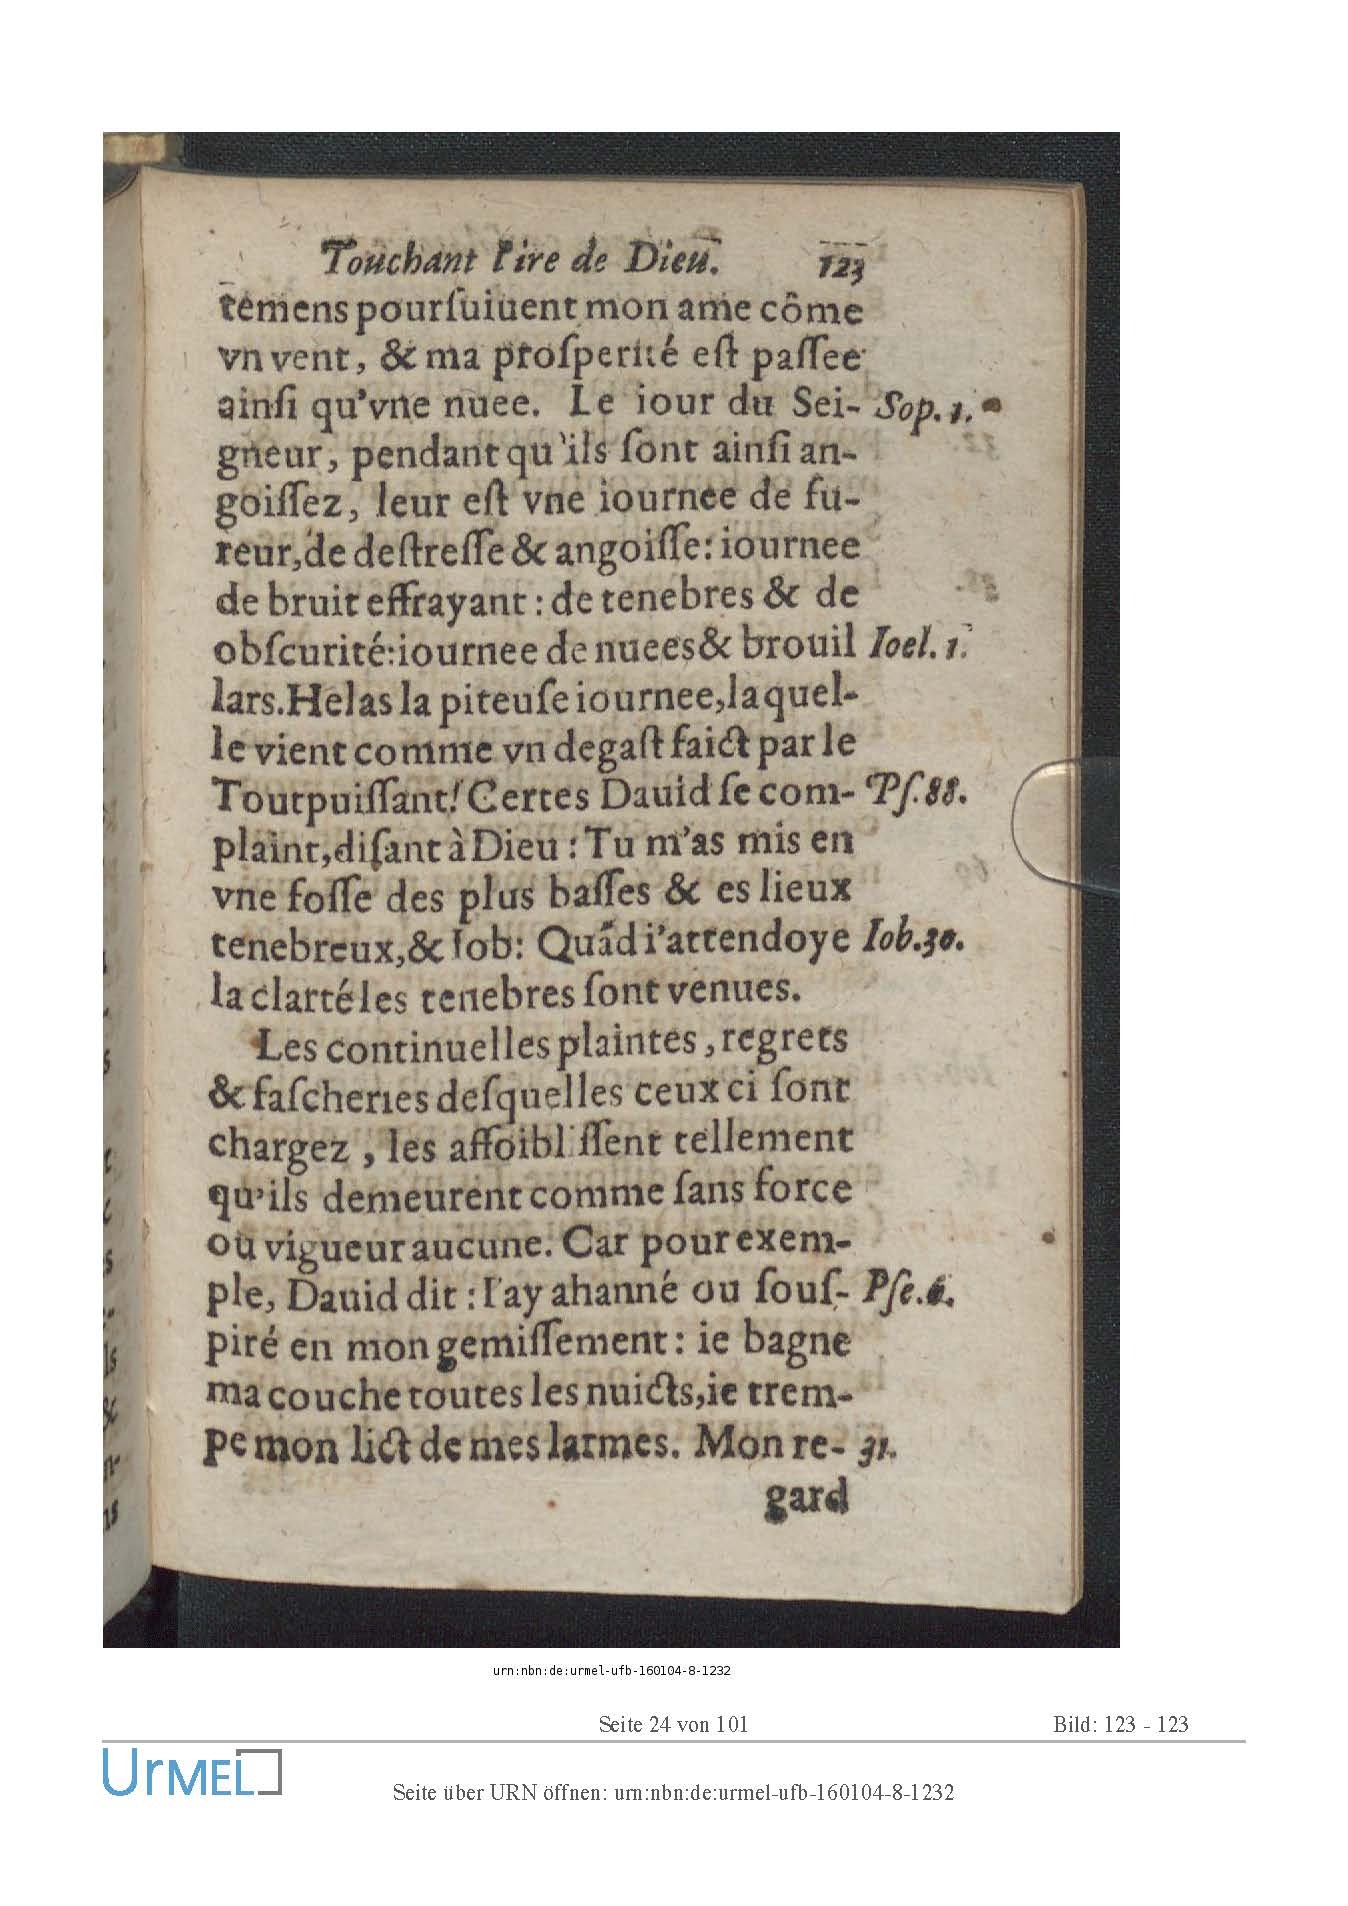 Touchant l'ire de Dieu. 123
temens pourſuiuent mon ame cõme
vn vent, & ma proſperité eſt paſſee
ainſi qu'vne nuee. Le iour du Sei- Sop. 1.
gneur, pendant qu'ils ſont ainſi an-
goiſſez, leur eſt vne iournee de fu-
reur, de deſtreſſe & angoiſſe: iournee
de bruit effrayant : de tenebres & de
obſcurité: iournee de nuees & brouil Ioel. 1.
lars. Helas la piteuſe iournee, laquel-
le vient comme vn degaſt faict par le
Toutpuiſſant! Certes Dauid ſe com- Pſ. 88.
plaint, diſant à Dieu : Tu m'as mis en
vne foſſe des plus baſſes & es lieux
tenebreux, & Iob: Quãd i'attendoye Iob. 30.
la clarté les tenebres ſont venues.
Les continuelles plaintes, regrets
& faſcheries deſquelles ceux ci ſont
chargez, les affoibliſſent tellement
qu'ils demeurent comme ſans force
ou vigueur aucune. Car pour exem-
ple, Dauid dit : I'ay ahanné ou ſouſ- Pſe. 6.
piré en mon gemiſſement : ie bagne
ma couche toutes les nuicts, ie trem-
pe mon lict de mes larmes. Mon re- 31.
gard
urn:nbn:de:urmel-ufb-160104-8-1232
Seite 24 von 101 Bild: 123 - 123
UrMEL
Seite über URN öffnen: urn:nbn:de:urmel-ufb-160104-8-1232